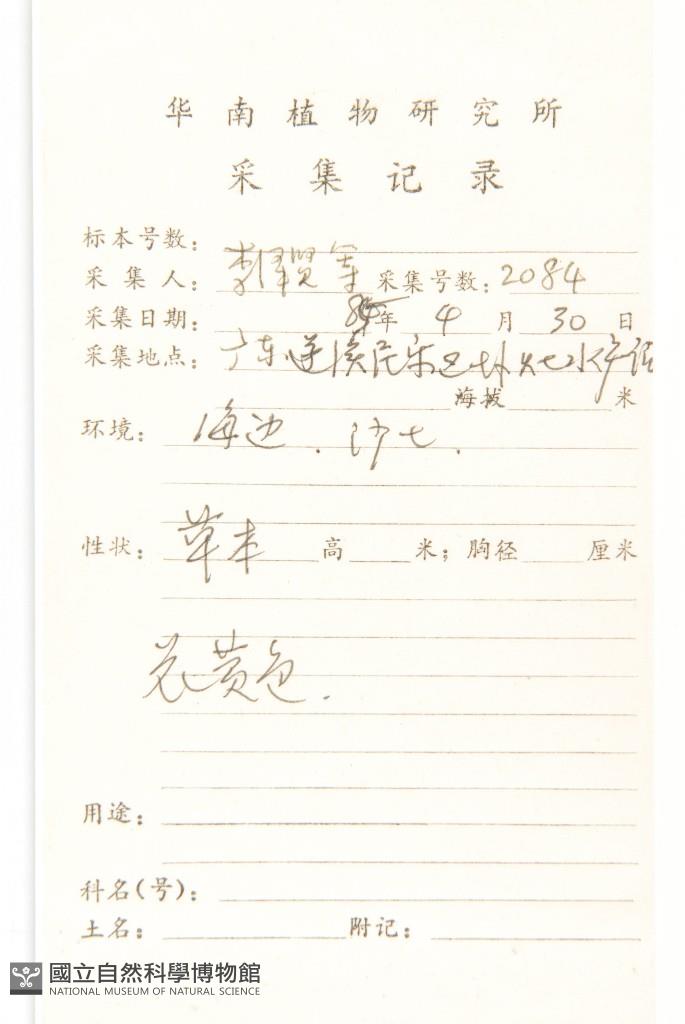 华南植物研究所
采集记录
标本号数：
采集人：李泽贤等 采集号数：2084
采集日期： 年 4 月 30 日
采集地点：广东
海拔 米
环境：海边．沙七．
性状：草本 高 米；胸径 厘米
花黄色．
用途：
科名(号)：
土名： 附记：
國立自然科學博物館
NATIONAL MUSEUM OF NATURAL SCIENCE